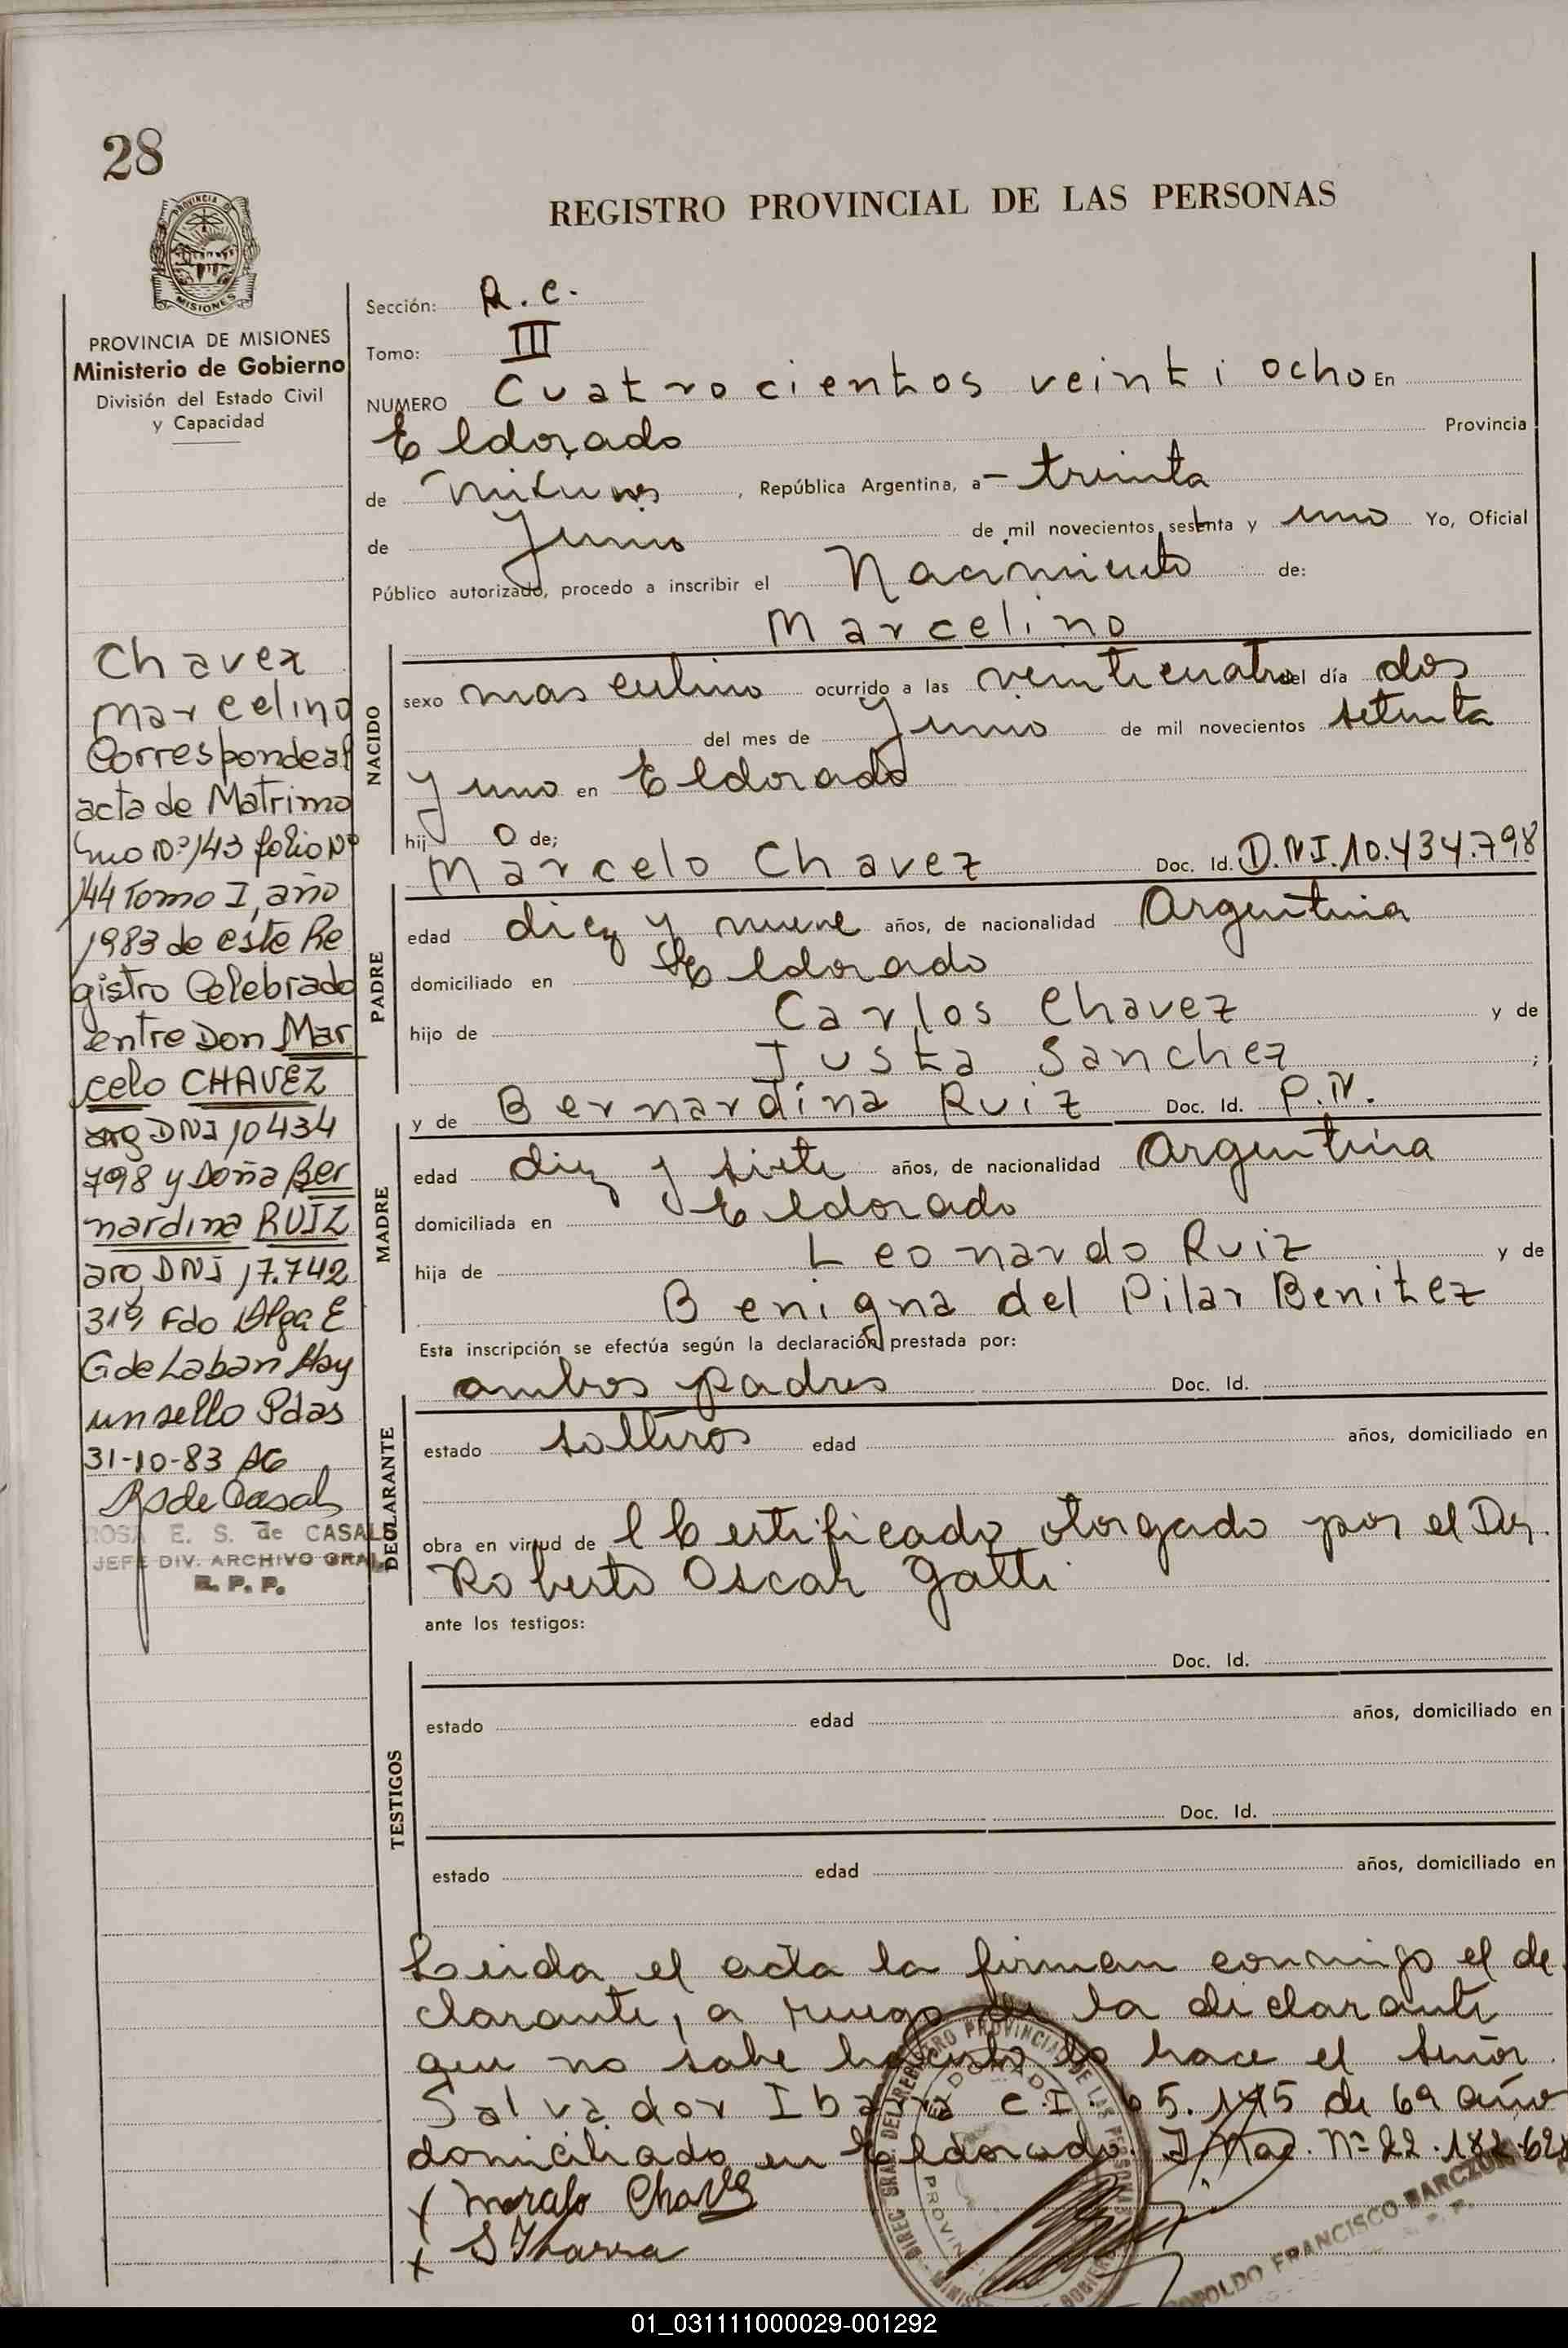 28
REGISTRO PROVINCIAL DE LAS PERSONAS
MISIONES
PROVINCIA DE MISIONES
Ministerio de Gobierno
División del Estado Civil
y Capacidad
Sección: R.C.
Tomo: III
NUMERO Cuatrocientos veinti ocho En
Eldorado Provincia
de Misiones, República Argentina, a - treinta
de Junio de mil novecientos setenta y uno Yo, Oficial
Público autorizado, procedo a inscribir el Nacimiento de:
Marcelino
NACIDO
sexo masculino ocurrido a las veinticuatro del día dos
del mes de Junio de mil novecientos setenta
y uno en Eldorado
hijo de;
Marcelo Chavez Doc. Id. D.N.I. 10.434.798
PADRE
edad diez y nueve años, de nacionalidad Argentina
domiciliado en Eldorado
hijo de Carlos Chavez y de
Justa Sanchez ;
y de Bernardina Ruiz Doc. Id. P.N.
MADRE
edad diez y siete años, de nacionalidad Argentina
domiciliada en Eldorado
hija de Leonardo Ruiz y de
Benigna del Pilar Benitez
Esta inscripción se efectúa según la declaración prestada por:
ambos padres Doc. Id.
DECLARANTE
estado solteros edad años, domiciliado en
obra en virtud de l Certificado otorgado por el Dr.
Roberto Oscar Gatti
ante los testigos:
Doc. Id.
TESTIGOS
estado edad años, domiciliado en
Doc. Id.
estado edad años, domiciliado en
Leida el acta la firman conmigo el de
clarante, a ruego de la declarante
que no sabe hacerlo lo hace el señor
Salvador Ibarra C.I. 65.145 de 69 años
domiciliado en Eldorado. Nº 22.182.62
x Marcelo Chavez
x S Ibarra
Chavez
Marcelino
Corresponde al
acta de Matrimo
nio Nº 143 folio Nº
144 Tomo I, año
1983 de este Re
gistro Celebrado
entre Don Mar
celo CHAVEZ
arg DNI 10434
798 y Doña Ber
nardina RUIZ
arg, DNI 17.742
319, Fdo Olga E
G de Laban Hay
un sello Pdas
31-10-83
RS de Casals
ROSA E. S. de CASALS
JEFE DIV. ARCHIVO GRAL.
R. P. P.
LEOPOLDO FRANCISCO BARCZUK
01_031111000029-001292